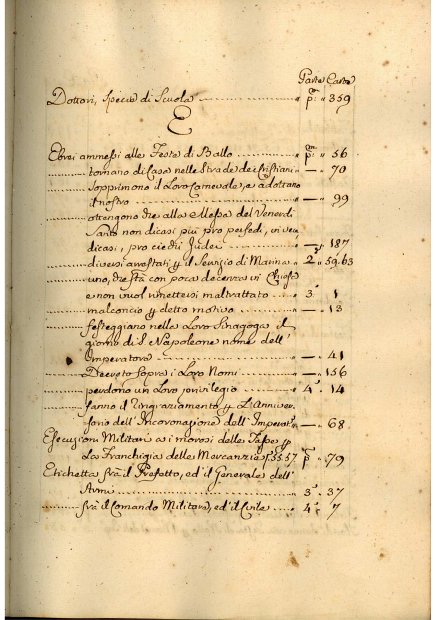 Parte Carte
Dottori, specie di Scuola ............ " pma " 359
E
Ebrei ammessi alle Feste di Ballo ............ " pma " 56
........ tornano di Casa nelle Strade de i Cristiani " — " 70
........ sopprimono il Loro Carnevale, e adottano
il nostro ............ " — " 99
........ ottengono che alla Messa del Venerdi
Santo non dicasi più pro perfidi, in vece
dicasi, pro ciechi Judei ............ " — " 187
........ diversi arrestati p il Servizio di Marina " 2a " 59.63
........ uno, che stà con poca decenza in Chiesa
e non vuol rimettersi maltrattato " 3a " 1
........ malconcio p detto motivo ............ " — " 13
........ festeggiano nella Loro Sinagoga il
giorno di S. Napoleone nome dell'
Imperatore ............ " — " 41
........ Decreto sopra i Loro Nomi ............ " — " 156
........ perdono un Loro privilegio ............ " 4a " 14
........ fanno il ringraziamento p L'Anniver-
sario dell'Incoronazione dell'Imperat.e " — " 68
Esecuzioni Militari a i morosi delle Tasse p
La Franchigia delle Mercanzie 55.57 " pma " 79
Etichetta frà il Prefetto, ed il Generale dell'
Armi ............ " 3a " 37
........ frà il Comando Militare, ed il Civile " 4a " 7